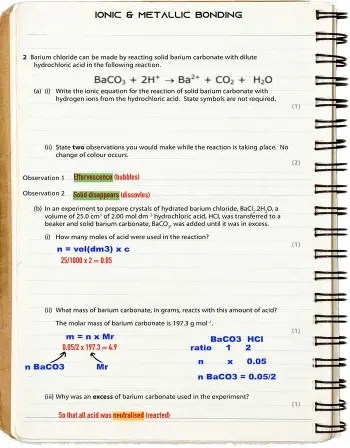 IONIC & METALLIC BONDING
2 Barium chloride can be made by reacting solid barium carbonate with dilute
hydrochloric acid in the following reaction.
BaCO3 + 2H+ → Ba2+ + CO2 + H2O
(a) (i) Write the ionic equation for the reaction of solid barium carbonate with
hydrogen ions from the hydrochloric acid. State symbols are not required.
(1)
(ii) State two observations you would make while the reaction is taking place. No
change of colour occurs.
(2)
Observation 1 Effervescence (bubbles)
Observation 2 Solid disappears (dissovles)
(b) In an experiment to prepare crystals of hydrated barium chloride, BaCl2.2H2O, a
volume of 25.0 cm3 of 2.00 mol dm−3 hydrochloric acid, HCl, was transferred to a
beaker and solid barium carbonate, BaCO3, was added until it was in excess.
(i) How many moles of acid were used in the reaction?
(1)
n = vol(dm3) x c
25/1000 x 2 = 0.05
(ii) What mass of barium carbonate, in grams, reacts with this amount of acid?
The molar mass of barium carbonate is 197.3 g mol−1.
(1)
m = n x Mr
0.05/2 x 197.3 = 4.9
n BaCO3 Mr
BaCO3 HCl
ratio 1 2
n x 0.05
n BaCO3 = 0.05/2
(iii) Why was an excess of barium carbonate used in the experiment?
(1)
So that all acid was neutralised (reacted)